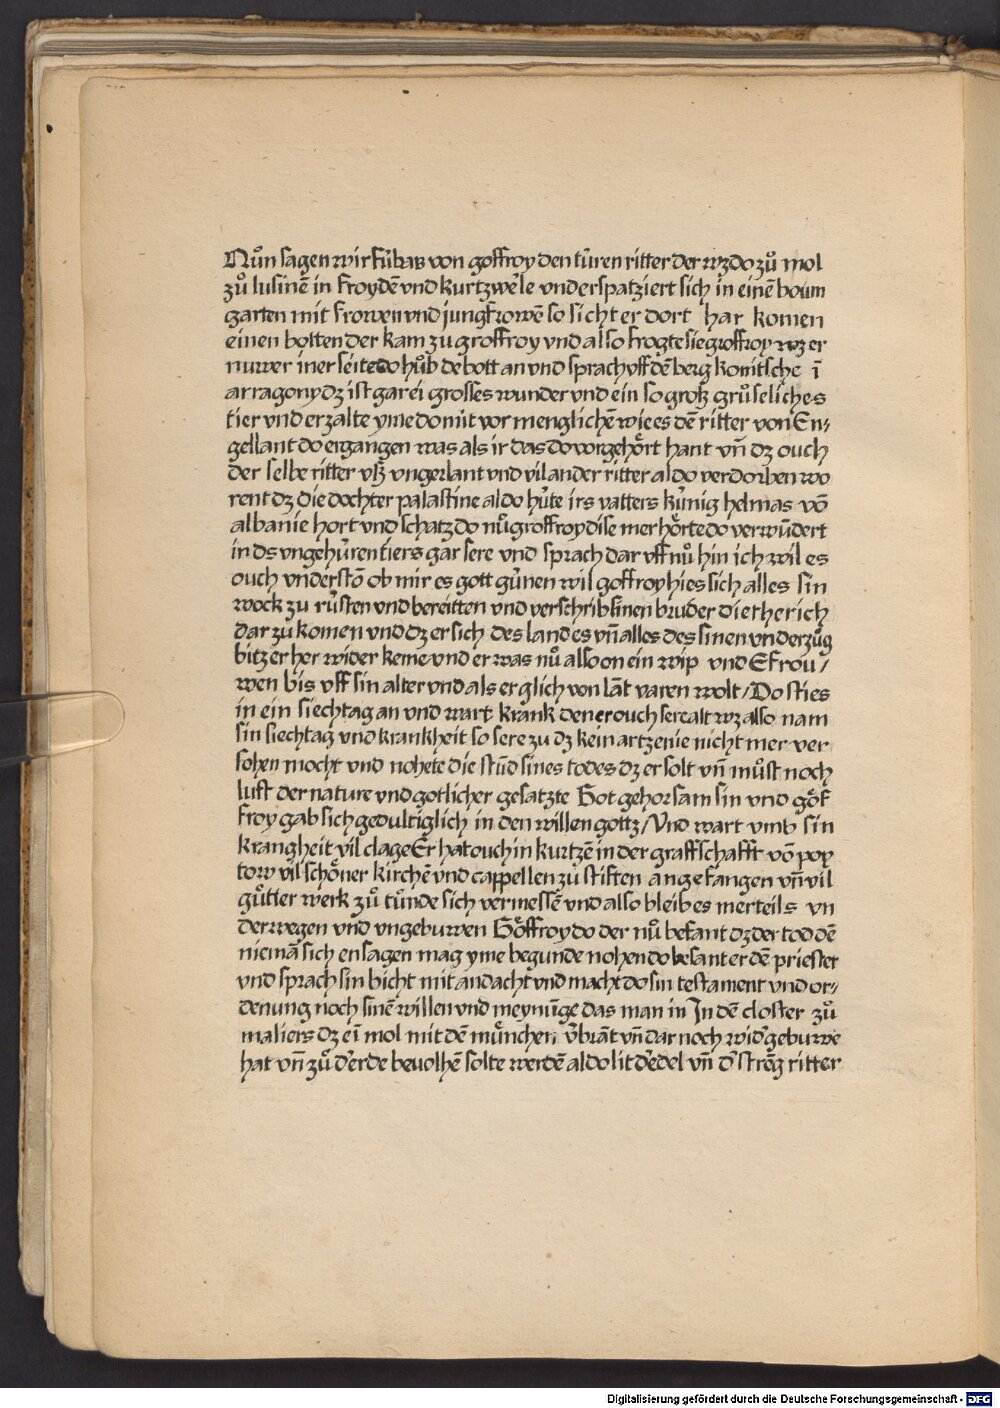 Nůn sagen wir fúbas von goffroy den túren ritter der wz do zů mol
zů lusinē in froydē vnd kurtzwele vnd erspatziert sich in einē boum
garten mit frowen vnd jungfrowē so sicht er dort har komen
einen botten der kam zu groffroy vnd also frogte sie groffroy wz er
nuwer iner seite do hůb de bott an vnd sprach vff dē berg konitsche ī
arragony dz ist gar ei grosses wunder vnd ein so groß grůseliches
tier vnd erzalte yme do mit vor menglichē wie es dē ritter von En-
gellant do ergangen was als ir das do vorgehöꝛt hant vñ dz ouch
der selbe ritter vß vngerlant vnd vil ander ritter aldo verdoꝛben wo
rent dz die dochter palastine aldo hůte irs vatters kúnig helmas vō
albanie hort vnd schatz do nů groffroy dise mer hörte do verwūdert
in ds vngehúren tiers gar sere vnd sprach dar vff nů hin ich wil es
ouch vnderstō ob mir es gott gúnen wil goffroy hies sich alles sin
wock zu rústen vnd bereitten vnd verschrib sinen bruder dietherich
dar zu komen vnd dz er sich des landes vñ alles des sinen vnderzúg
bitz er her wider keme vnd er was nů also on ein wip vnd Efrou/
wen bis vff sin alter vnd als er glich von lāt varen wolt/ Do sties
in ein siechtag an vnd wart krank den er ouch sere alt wz also nam
sin siechtag vnd krankheit so sere zu dz kein artzenie nicht mer ver
sohen mocht vnd nohete die stūd sines todes dz er solt vñ můst noch
luft der nature vnd gotlicher gesatzte Got gehorsam sin vnd göf
froy gab sich gedultiglich in den willen gottz/ Vnd wart vmb sin
krangheit vil clage Er hat ouch in kurtzē in der graffschafft vō poy
tow vil schöner kirchē vnd cappellen zu stiften angefangen vñ vil
gůtter werk zů túnde sich vermessē vnd also bleib es merteils vn
derwegen vnd vngebuwen Göffroy do der nů befant dz der tod dē
niemā sich ensagen mag yme begunde nohen do besant er dē priester
vnd sprach sin bicht mit andacht vnd macht do sin testament vnd or-
denung noch sinē willen vnd meynūge das man in In dē closter zů
maliers dz ei mol mit dē můnchen v̓brāt vñ dar noch wid̓ gebuwe
hat vñ zů d̓ erde beuolhē solte werdē aldo lit d̓ edel vñ d̓ strēg ritter
Digitalisierung gefördert durch die Deutsche Forschungsgemeinschaft - DFG